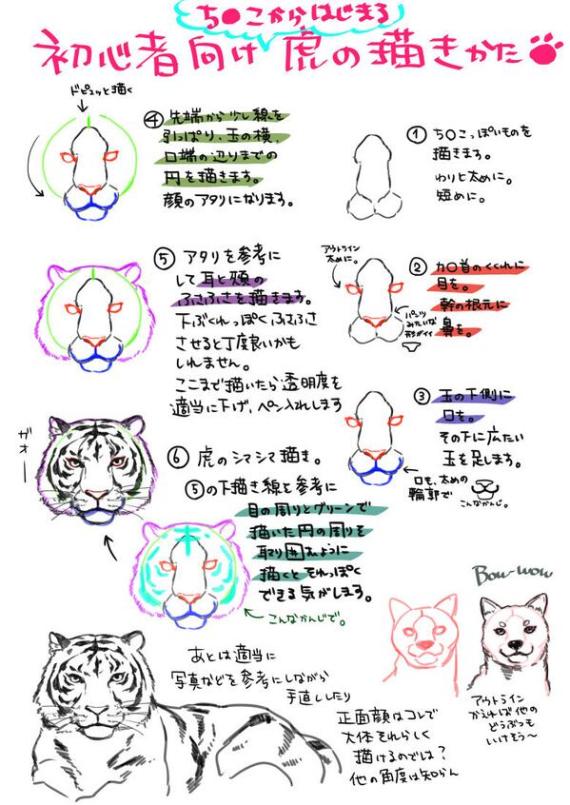 ち●こからはじまる
初心者向け 虎の描きかた
① ち○こっぽいものを
描きます。
わりと太めに。
短めに。
② カ○首のくくれに
目を。
幹の根元に
鼻を。
アウトライン
太めに。
パンツ
みたいな
形がイイ
③ 玉の下側に
口を。
その下に広たい
玉を足します。
口も、太めの
輪郭で
こんなかんじ。
ドピュッと描く
④ 先端から少し線を
引っぱり、玉の横、
口端の辺りまでの
円を描きます。
顔のアタリになります。
⑤ アタリを参考に
して耳と頬の
ふさふさを描きます。
下ぶくれっぽくふさふさ
させると丁度良いかも
しれません。
ここまで描いたら透明度を
適当に下げ、ペン入れします
ガオー
⑥ 虎のシマシマ描き。
⑤の下描き線を参考に
目の周りとグリーンで
描いた円の周りを
取り囲むように
描くとそれっぽく
できる気がします。
こんなかんじで。
あとは適当に
写真などを参考にしながら
手直ししたり
正面顔はコレで
大体それらしく
描けるのでは?
他の角度は知らん
Bow-wow
アウトライン
かえれば他の
どうぶつも
いけそう〜